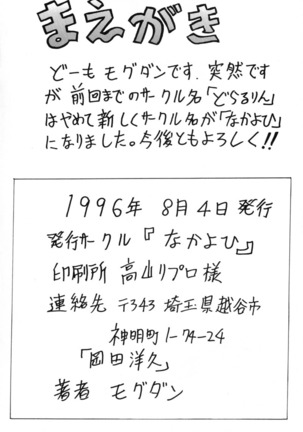 まえがき
どーも モグダンです．突然です
が 前回までのサークル名「どらるりん」
はやめて新しくサークル名が「なかよひ」
になりました。今後ともよろしく!!
1996年 8月4日発行
発行サークル『なかよひ』
印刷所 高山リプロ様
連絡先 〒343 埼玉県越谷市
神明町1-74-24
「岡田洋久」
著者 モグダン